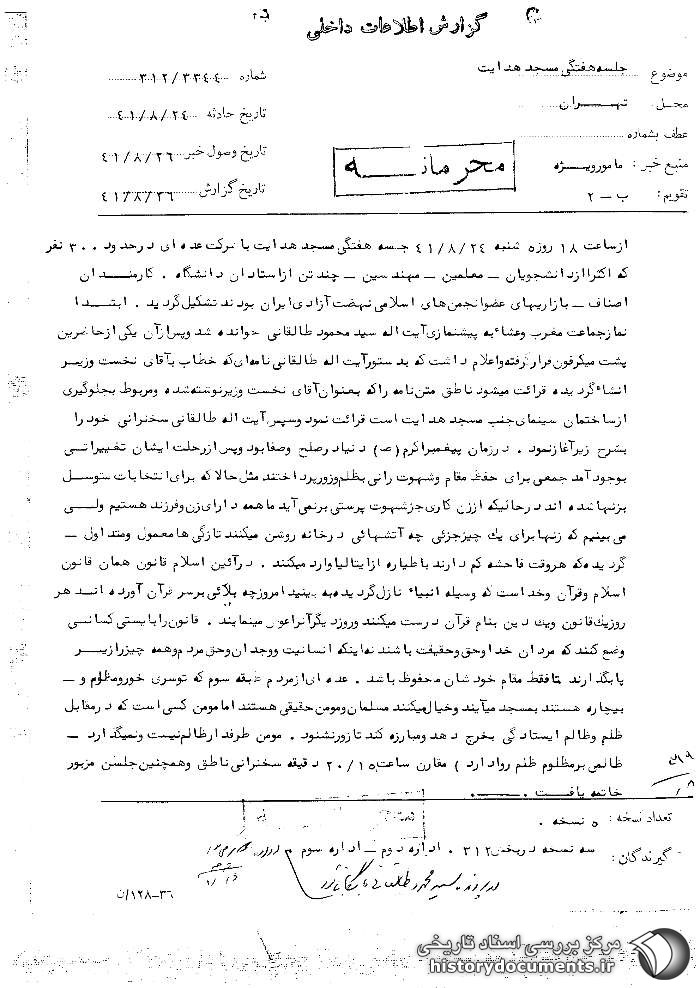 گزارش اطلاعات داخلی
موضوع جلسه هفتگی مسجد هدایت
شماره ۳۱۲/۳۳۴۴
محل. تهران
تاریخ حادثه ۴۱/۸/۲۴
عطف بشماره
تاریخ وصول خبر ۴۱/۸/۲۶
منبع خبر: مامورویژه
محرمانه
تاریخ گزارش ۴۱/۸/۳۶
تقویم: ب - ۲
ازساعت ۱۸ روزه شنبه ۴۱/۸/۲۴ جلسه هفتگی مسجد هدایت با شرکت عده ای درحدود ۳۰۰ نفر
که اکثرا ازدانشجویان - معلمین - مهندسین - چند تن ازاستادان دانشگاه . کارمندان
اصناف - بازاریهای عضوانجمن های اسلامی نهضت آزادی ایران بودند تشکیل گردید . ابتدا
نمازجماعت مغرب وعشاء به پیشنمازی آیت اله سید محمود طالقانی خوانده شد وپس ازآن یکی ازحاضرین
پشت میکرفون قرارگرفته واعلام داشت که بدستورآیت اله طالقانی نامه ای که خطاب بآقای نخست وزیر
انشاء گردیده قرائت میشود ناطق متن نامه راکه بعنوان آقای نخست وزیرنوشته شده ومربوط بجلوگیری
ازساختمان سینمای جنب مسجد هدایت است قرائت نمود وسپس آیت اله طالقانی سخنرانی خود را
بشرح زیرآغازنمود . درزمان پیغمبراکرم (ص) دنیا درصلح وصفابود وپس ازرحلت ایشان تغییراتی
بوجود آمد جمعی برای حفظ مقام وشهوت رانی بظلم وزورپرداختند مثل حالا که برای انتخابات متوسل
بزنها شده اند درحالیکه اززن کاری جزشهوت پرستی برنمی آید ماهمه دارای زن وفرزند هستیم ولی
می بینیم که زنها برای یک چیزجزئی چه آتشهائی درخانه روشن میکنند تازگی ها معمول ومتداول -
گردیده که هروقت فاحشه کم دارند باطیاره ازایتالیا وارد میکنند . درآئین اسلام قانون همان قانون
اسلام وقرآن وخداست که وسیله انبیاء نازل گردیده به بینید امروزچه بلائی برسر قرآن آورده اند هر
روزیک قانون ویک دین بنام قرآن درست میکنند وروزدیگرآنراعوض مینمایند . قانون رابایستی کسانی
وضع کنند که مردان خدا وحق وحقیقت باشند نه اینکه انسانیت ووجدان وحق مردم وهمه چیزرازیر
پابگذارند تافقط مقام خودشان محفوظ باشد . عده ای ازمردم طبقه سوم که توسری خورومظلوم و -
بیچاره هستند بمسجد میآیند وخیال میکنند مسلمان ومومن حقیقی هستند امامومن کسی است که درمقابل
ظلم وظالم ایستادگی بخرج دهد ومبارزه کند تازورنشنود . مومن طرفدارظالم نیست ونمیگذارد -
ظالمی برمظلوم ظلم روادارد ) مقارن ساعت ۲۰/۱۵ دقیقه سخنرانی ناطق وهمچنین جلسه مزبور
خاتمه یافت .
تعداد نسخه : ۵ نسخه .
گیرندگان : سه نسخه دربخش ۳۱۲ . اداره دوم - اداره سوم
در پرونده سید محمود طالقانی بایگانی شود
۱۲۸-۳۶/ن
مرکز بررسی اسناد تاریخی
historydocuments.ir